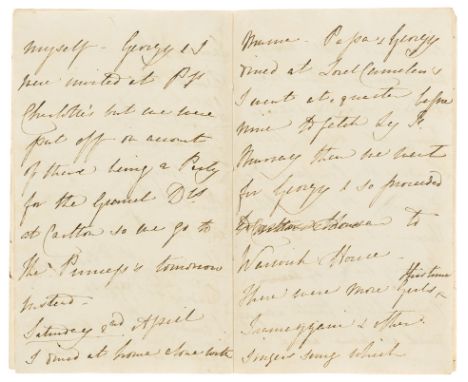 myself - Georgy & I
were invited at Pss
Charlotte's but we were
put off on account
of there being a Party
for the Grand Dss
at Carlton so we go to
the Princess's tomorrow
instead -
Saturday 2nd April
I dined at home alone with
Mama - Papa & Georgy
dined at Lord Camelen's
I went at a quarter before
nine to fetch Ly A.
Murray then we went
for Georgy & so proceeded
to Carlton House to
Warwick House -
There were more Girls this time
& other
Singers sung which